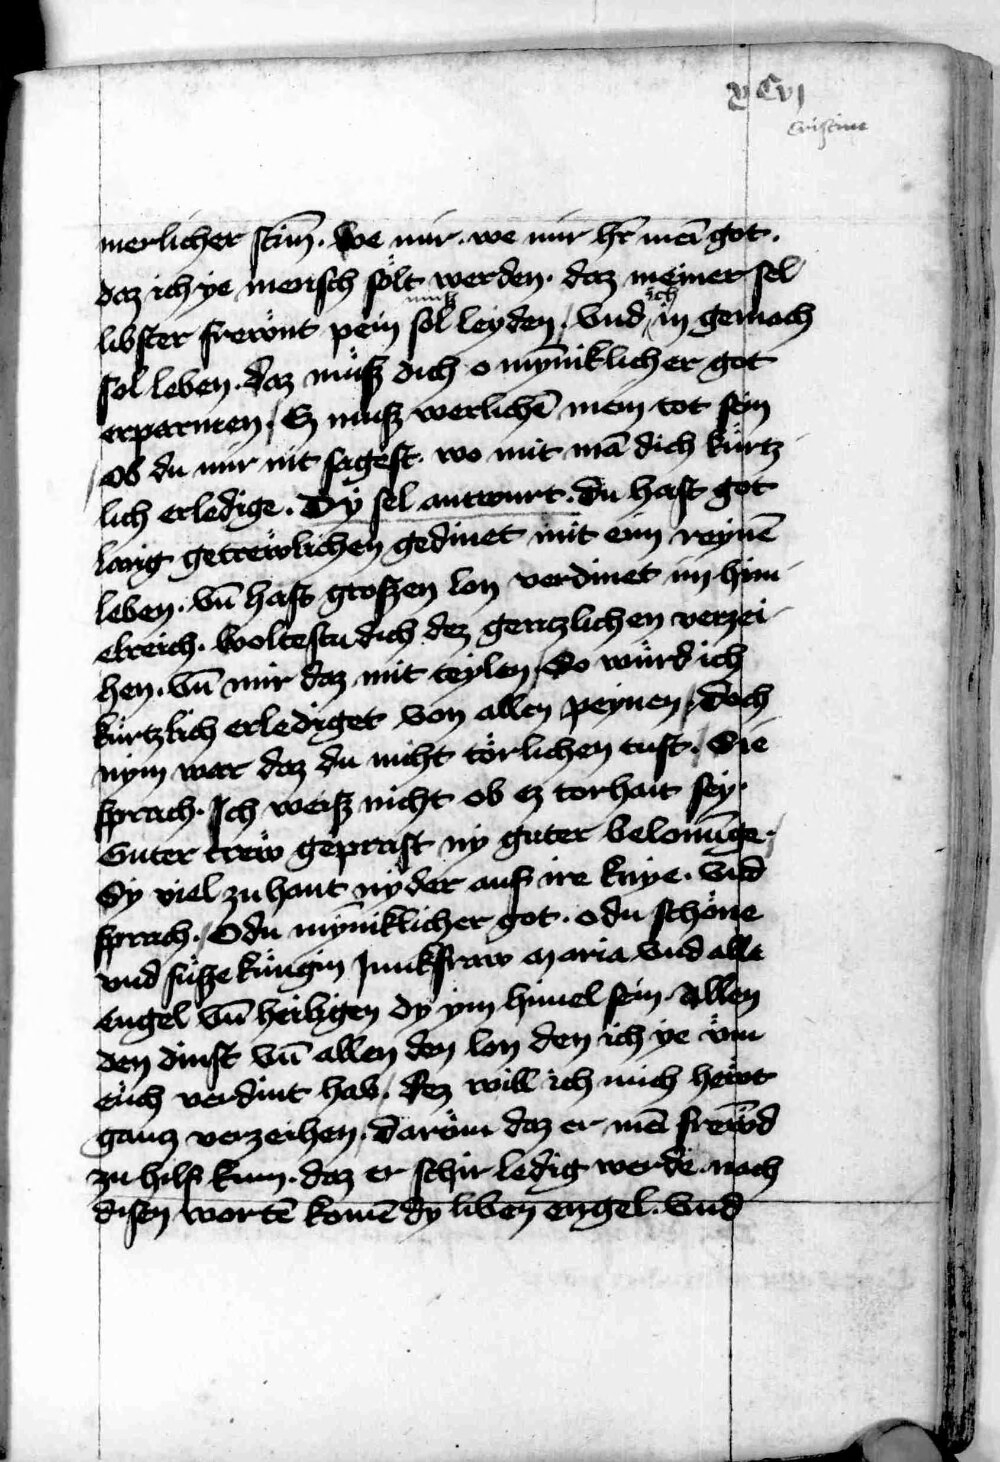 xCvj
Cristine
merlicher stim̄. We mir. we mir hr̄ mei͂ got.
daz ich ye mensch sölt werden. daz meiner sel
libster frewnt pein sol muß leyden / Vnd ich in gemach
sol leben. daz muß dich o mÿniklicher got
erparmen / Ez muß werlichē mein tot sein
Ob du mir nit sagest. wo mit mā dich kürtz
lich erledige. Dÿ sel antwurt. du hast got
lang getrewlichen gedinet mit eim reynē
leben. vn̄ hast großen lon verdinet im him
elreich. Woltestu dich dez gentzlichen verzei
hen. vn̄ mir daz mit teylen / So würd ich
kürtzlich erlediget von allen peynen / Doch
nym war daz du nicht törlichen tust / Sie
sprach. Ich weiß nicht ob ez torhait sey.
Guter trew geprast ny guter belonūge /
Sy viel zu hant nyder auf ire knye. vnd
sprach / O du myniklicher got. o du schöne
vnd süsse küngin Junckfraw maria vnd alle
Engel vn̄ heiligen dy ym himel sein. Allen
den dinst vn̄ allen den lon den ich ye vm
euch verdint hab / dez will ich mich hewt
gancz verzeihen / Darvm daz er mei͂ frewnd
zu hilf kum. daz er schir ledig werde. nach
disen wortē komē dy liben engel. vnd